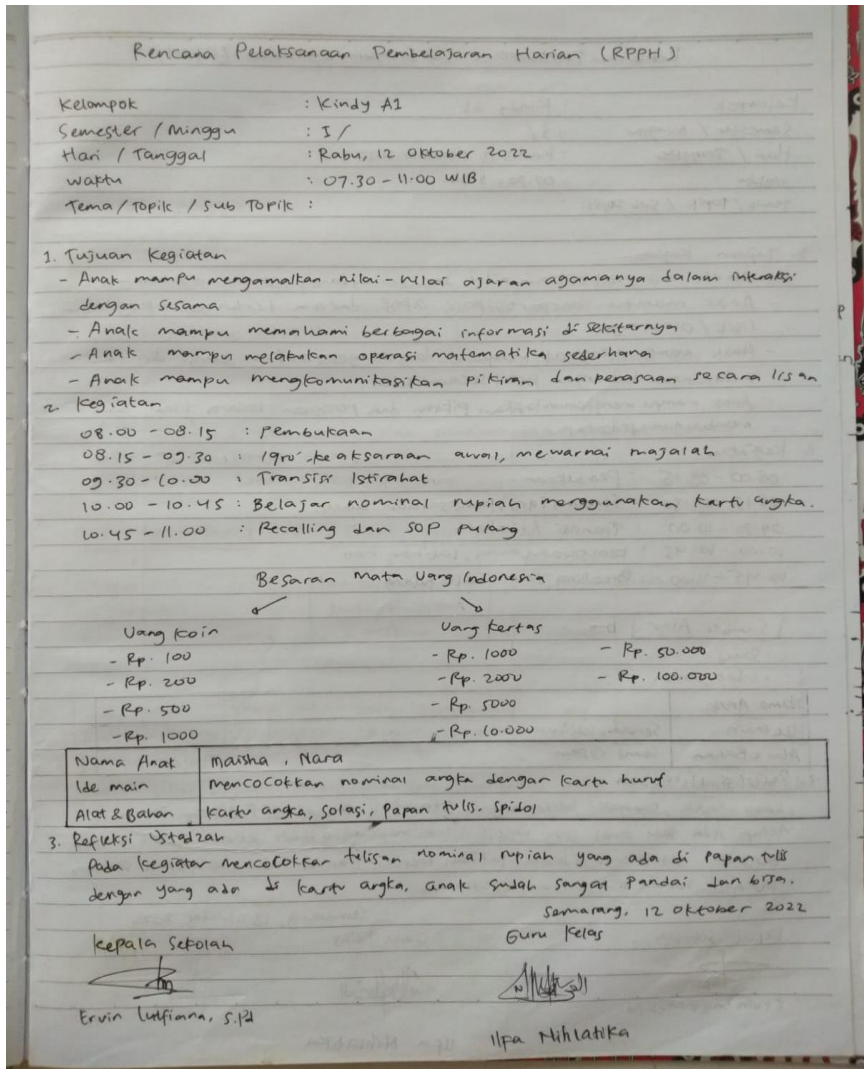 Rencana Pelaksanaan Pembelajaran Harian (RPPH)
Kelompok : Kindy A1
Semester / Minggu : I /
Hari / Tanggal : Rabu, 12 Oktober 2022
Waktu : 07.30 - 11.00 WIB
Tema / Topik / Sub Topik :
1. Tujuan Kegiatan
- Anak mampu mengamalkan nilai-nilai ajaran agamanya dalam interaksi
dengan sesama
- Anak mampu memahami berbagai informasi di sekitarnya
- Anak mampu melakukan operasi matematika sederhana
- Anak mampu mengkomunikasikan pikiran dan perasaan secara lisan
2. Kegiatan
08.00 - 08.15 : Pembukaan
08.15 - 09.30 : Iqro', keaksaraan awal, mewarnai majalah
09.30 - 10.00 : Transisi Istirahat
10.00 - 10.45 : Belajar nominal rupiah menggunakan kartu angka.
10.45 - 11.00 : Recalling dan SOP pulang
Besaran Mata Uang Indonesia
Uang Koin Uang Kertas
- Rp. 100 - Rp. 1000 - Rp. 50.000
- Rp. 200 - Rp. 2000 - Rp. 100.000
- Rp. 500 - Rp. 5000
- Rp. 1000 - Rp. 10.000
Nama Anak Maisha, Nara
Ide main Mencocokkan nominal angka dengan kartu huruf
Alat & Bahan Kartu angka, solasi, papan tulis. spidol
3. Refleksi Ustadzah
Pada kegiatan mencocokkan tulisan nominal rupiah yang ada di papan tulis
dengan yang ada di kartu angka, anak sudah sangat pandai dan bisa.
Semarang, 12 Oktober 2022
Kepala Sekolah Guru Kelas
Ervin Lutfiana, S.Pd
Ilpa Nihlatika